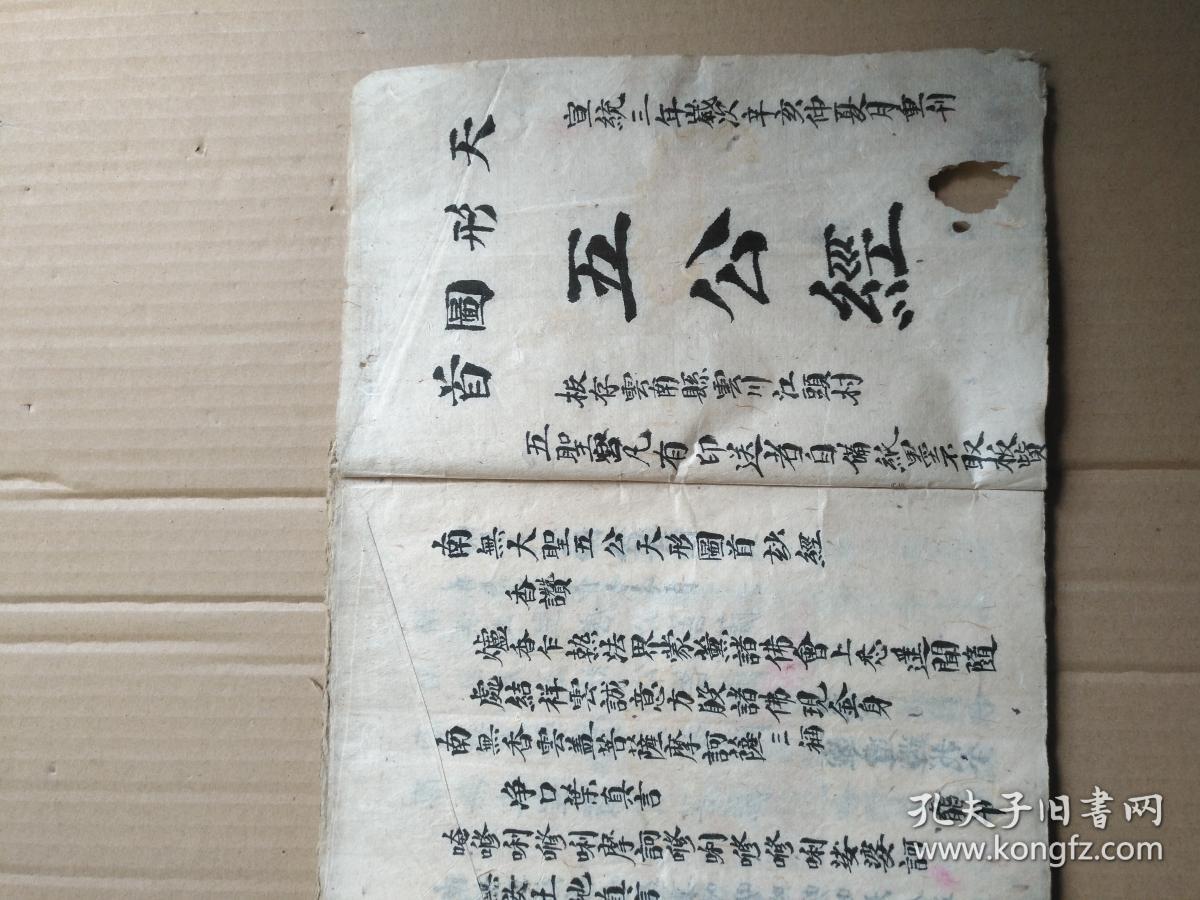 宣統三年歲次辛亥仲夏月重刊
五公經
板存雲南縣雲川江頭村
五聖宮凡有印送者自備紙墨不取板貲
天形圖首
南無大聖五公天形圖首妙經
香讚
爐香乍熱法界蒙薰諸佛會上悉遙聞隨
處結祥雲誠意方殷諸佛現金身
南無香雲蓋菩薩摩訶薩三稱
净口業真言
唵唎唎摩訶唎唎娑婆訶
土地真言
孔夫子旧书网
www.kongfz.com